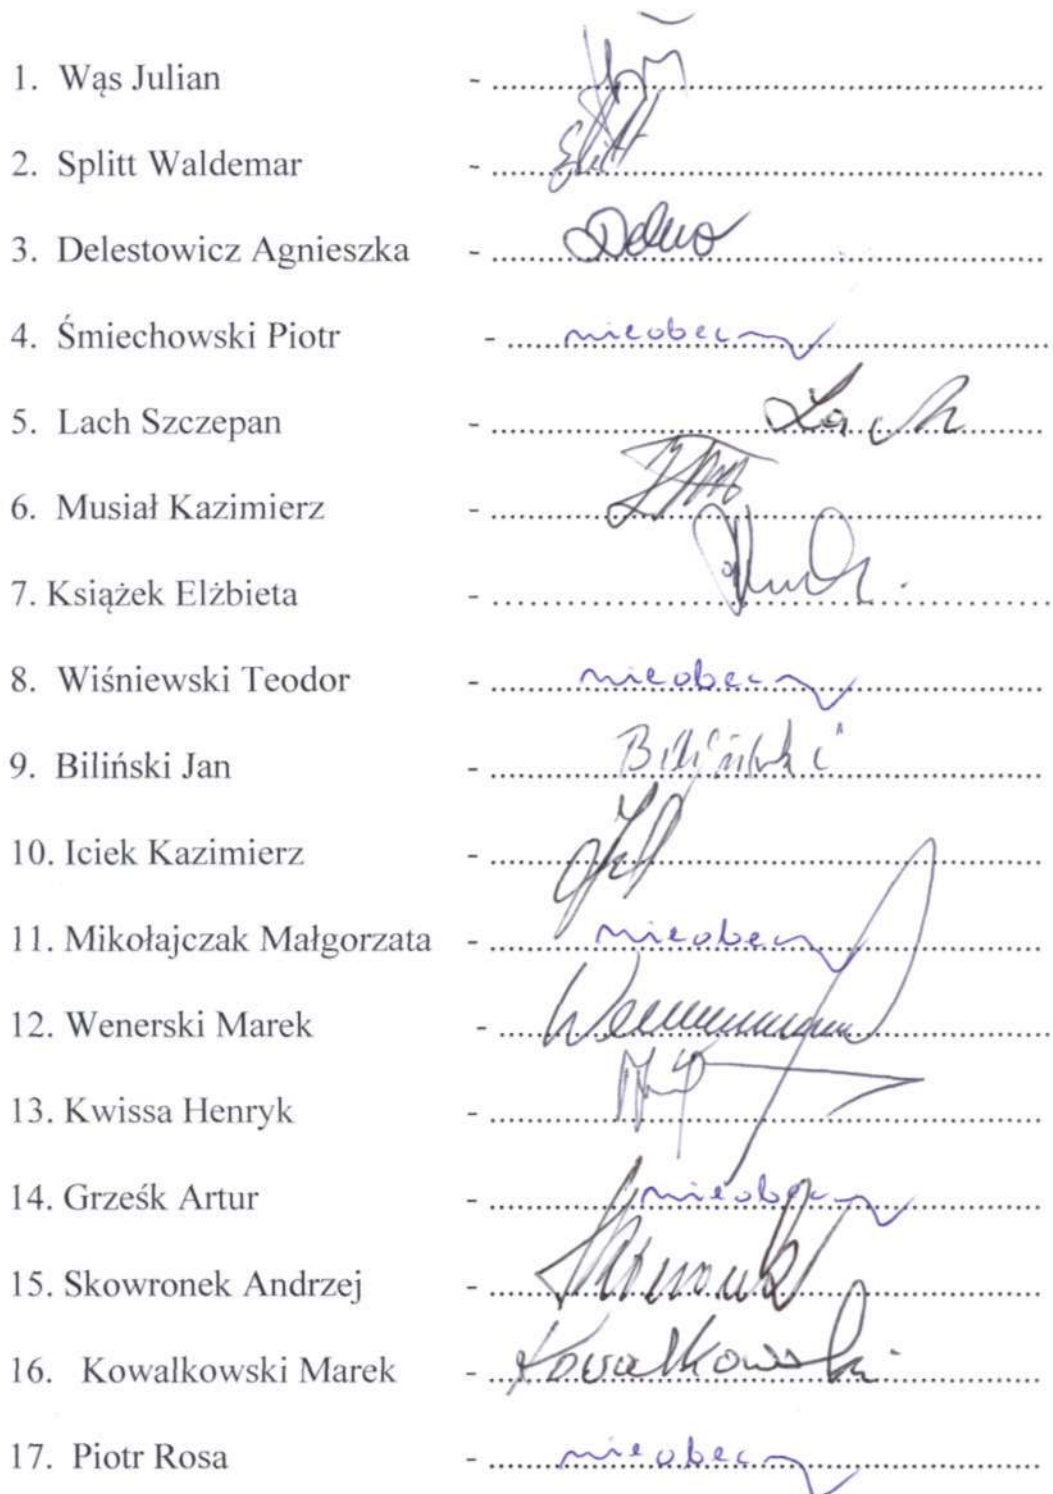 1. Wąs Julian - ..........
2. Splitt Waldemar - .......... Splitt
3. Delestowicz Agnieszka - ..........
4. Śmiechowski Piotr - .......... nieobecny
5. Lach Szczepan - .......... Lach
6. Musiał Kazimierz - ..........
7. Książek Elżbieta - ..........
8. Wiśniewski Teodor - .......... nieobecny
9. Biliński Jan - .......... Biliński
10. Iciek Kazimierz - ..........
11. Mikołajczak Małgorzata - .......... nieobecny
12. Wenerski Marek - ..........
13. Kwissa Henryk - ..........
14. Grześk Artur - .......... nieobecny
15. Skowronek Andrzej - ..........
16. Kowalkowski Marek - .......... Kowalkowski
17. Piotr Rosa - .......... nieobecny